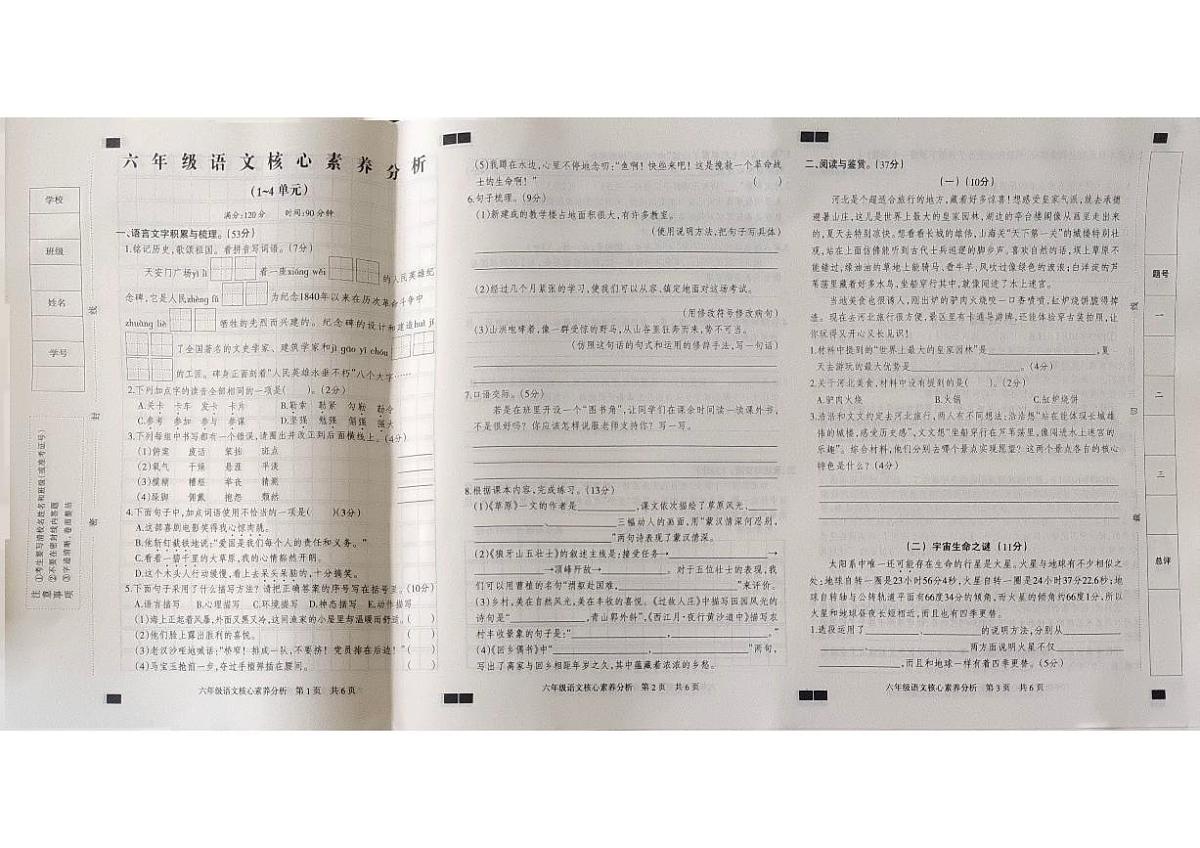 学校
班级
姓名
学号
注意事项
①考生要写清校名姓名和班级(或准考证号)
②不要在密封线内答题
③字迹清晰,卷面整洁
密
封
线
六年级语文核心素养分析
(1~4单元)
满分:120分 时间:90分钟
一、语言文字积累与梳理。(53分)
1.铭记历史,歌颂祖国。看拼音写词语。(7分)
天安门广场yì lì 着一座xióng wěi 的人民英雄纪
念碑,它是人民zhèng fǔ 为纪念1840年以来在历次革命斗争中
zhuàng liè 牺牲的先烈而兴建的。纪念碑的设计和建造huì jí
了全国著名的文史学家、建筑学家和jì gāo yì chóu
的工匠。碑身正面刻着“人民英雄永垂不朽”八个大字……
2.下列加点字的读音全部相同的一项是( )。(2分)
A.关卡 卡车 发卡 卡片 B.勒索 勒紧 勾勒 勒令
C.参考 参加 参与 参谋 D.坚强 勉强 倔强 强大
3.下列每组中书写都有一个错误,请圈出并改正到后面横线上。(4分)
(1)饼案 疲洁 笨拙 斑点
(2)氧气 干燥 悬崖 平淡
(3)模糊 糟糕 举丧
(4)踩脚 佣戴 抱怨 颓然
4.下面句子中,加点词语使用不恰当的一项是( )(3分)
A.这部喜剧电影笑得我心惊肉跳。
B.他斩钉截铁地说:“爱国是我们每个人的责任和义务。”
C.看着一碧千里的大草原,我的心情豁然开朗。
D.这个木头人行动缓慢,看上去呆头呆脑的,十分搞笑。
5.下面句子采用了什么描写方法?请把正确答案的序号写在括号里。(10分)
A.语言描写 B.心理描写 C.环境描写 D.神态描写 E.动作描写
(1)海上正起着风暴,外面又黑又冷,这间渔家的小屋里却温暖而舒适。( )
(2)他们脸上露出胜利的喜悦。 ( )
(3)老汉沙哑地喊话:“桥窄!排成一队,不要挤!党员排在后边!”( )
(4)马宝玉抢前一步,夺过手榴弹插在腰间。 ( )
六年级语文核心素养分析 第1页 共6页
(5)我蹲在水边,心里不停地念叨:“鱼啊!快些来吧!这是挽救一个革命战
士的生命啊!” ( )
6.句子梳理。(9分)
(1)新建成的教学楼占地面积很大,有许多教室。
(使用说明方法,把句子写具体)
(2)经过几个月紧张的学习,使我们可以从容、镇定地面对这场考试。
(用修改符号修改病句)
(3)山洪咆哮着,像一群受惊的野马,从山谷里狂奔而来,势不可当。
(仿照这句话的句式和运用的修辞手法,写一句话)
7.口语交际。(5分)
若是在班里开设一个“图书角”,让同学们在课余时间读一读课外书,
不是很好吗?你应该怎样说服老师支持你?写一写。
8.根据课本内容,完成练习。(13分)
(1)《草原》一文的作者是 ,课文依次描绘了草原风光、
、 三幅动人的画面,用“蒙汉情深何忍别,
”两句诗表现了蒙汉情深。
(2)《狼牙山五壮士》的叙述主线是:接受任务→ →
→顶峰歼敌→ 。对于五位壮士的表现,我
们可以用曹植的名句“捐躯赴国难, ”来评价。
(3)乡村,美在自然风光,美在丰收的喜悦。《过故人庄》中描写田园风光的
诗句是“ ,青山郭外斜”,《西江月·夜行黄沙道中》描写农
村丰收景象的句子是:“ , 。”
(4)《回乡偶书》中“ , ”两句,
写出了离家与回乡相距年岁之久,其中蕴藏着浓浓的乡愁。
六年级语文核心素养分析 第2页 共6页
二、阅读与鉴赏。(37分)
(一)(10分)
河北是个超适合旅行的地方,藏着好多惊喜!想感受皇家气派,就去承德
避暑山庄,这儿是世界上最大的皇家园林,湖边的亭台楼阁像从画里走出来
的,夏天去特别凉快。想看看长城的雄伟,山海关“天下第一关”的城楼特别壮
观,站在上面仿佛能听到古代士兵巡逻的脚步声。喜欢自然的话,坝上草原不
能错过,绿油油的草地上能骑马、看牛羊,风吹过像绿色的波浪;白洋淀的芦
苇荡里藏着好多水鸟,坐船穿行其中,就像闯进了水上迷宫。
当地美食也很诱人,刚出炉的驴肉火烧咬一口香喷喷,缸炉烧饼脆得掉
渣。现在去河北旅行很方便,景区里有卡通导游牌,还能体验穿古装拍照,让
你玩得又开心又长见识!
1.材料中提到的“世界上最大的皇家园林”是 ,夏
天去游玩的最大优势是 。(4分)
2.关于河北美食,材料中没有提到的是( )。(2分)
A.驴肉火烧 B.火锅 C.缸炉烧饼
3.浩浩和文文约定去河北旅行,两人有不同想法:浩浩想“站在能体现长城雄
伟的城楼,感受历史感”,文文想“坐船穿行在芦苇荡里,像闯进水上迷宫的
乐趣”。综合材料,他们分别去哪个景点实现愿望?这两个景点各自的核心
特色是什么?(4分)
(二)宇宙生命之谜(11分)
太阳系中唯一还可能存在生命的行星是火星。火星与地球有不少相似之
处:地球自转一圈是23小时56分4秒,火星自转一圈是24小时37分22.6秒;地
球自转轴与公转轨道平面有66度34分的倾角,而火星的倾角约66度1分,所以
火星和地球昼夜长短相近,而且也有四季更替。
1.选段运用了 、 的说明方法,分别从
、 两方面说明火星不仅
,而且和地球一样有着四季更替。(5分)
六年级语文核心素养分析 第3页 共6页
线
切
裁
题号
一
二
三
总评